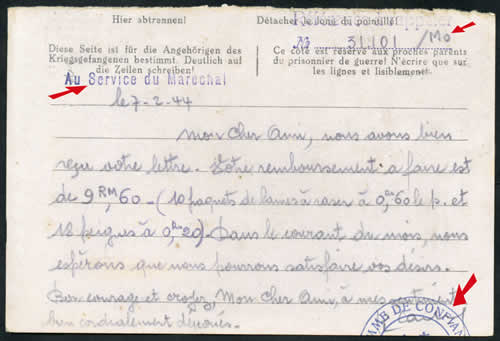 Hier abtrennen!
Détacher le long du pointillé!
№ 31401 /Mo
Diese Seite ist für die Angehörigen des
Kriegsgefangenen bestimmt. Deutlich auf
die Zeilen schreiben!
Ce côté est réservé aux proches parents
du prisonnier de guerre! N'écrire que sur
les lignes et lisiblement.
Au Service du Marechal
le 7-2-44
Mon Cher Ami, nous avons bien
reçu votre lettre. Votre remboursement à faire est
de 9 RM,60 - (10 paquets de lames à raser à 0,60 le p. et
18 peignes à 0,20). Dans le courant du mois, nous
espérons que nous pourrons satisfaire vos désirs.
Bon courage et croyez, Mon Cher Ami, à mes
bien cordialement dévoués.
MME DE CONFIAN